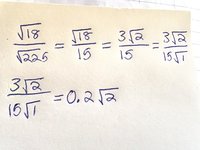 √18/√225 = √18/15 = 3√2/15 = 3√2/15√1
3√2/15√1 = 0.2√2